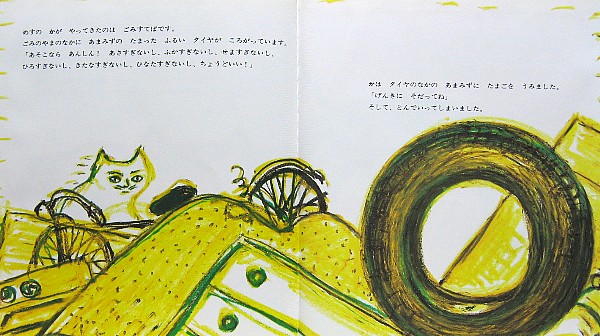 めすの　かが　やってきたのは　ごみすてばです。
ごみのやまのなかに　あまみずの　たまった　ふるい　タイヤが　ころがっています。
「あそこなら　あんしん！　あさすぎないし、ふかすぎないし、せますぎないし、
ひろすぎないし、きたなすぎないし、ひなたすぎないし、ちょうどいい！」
かは　タイヤのなかの　あまみずに　たまごを　うみました。
「げんきに　そだってね」
そして、とんでいってしまいました。